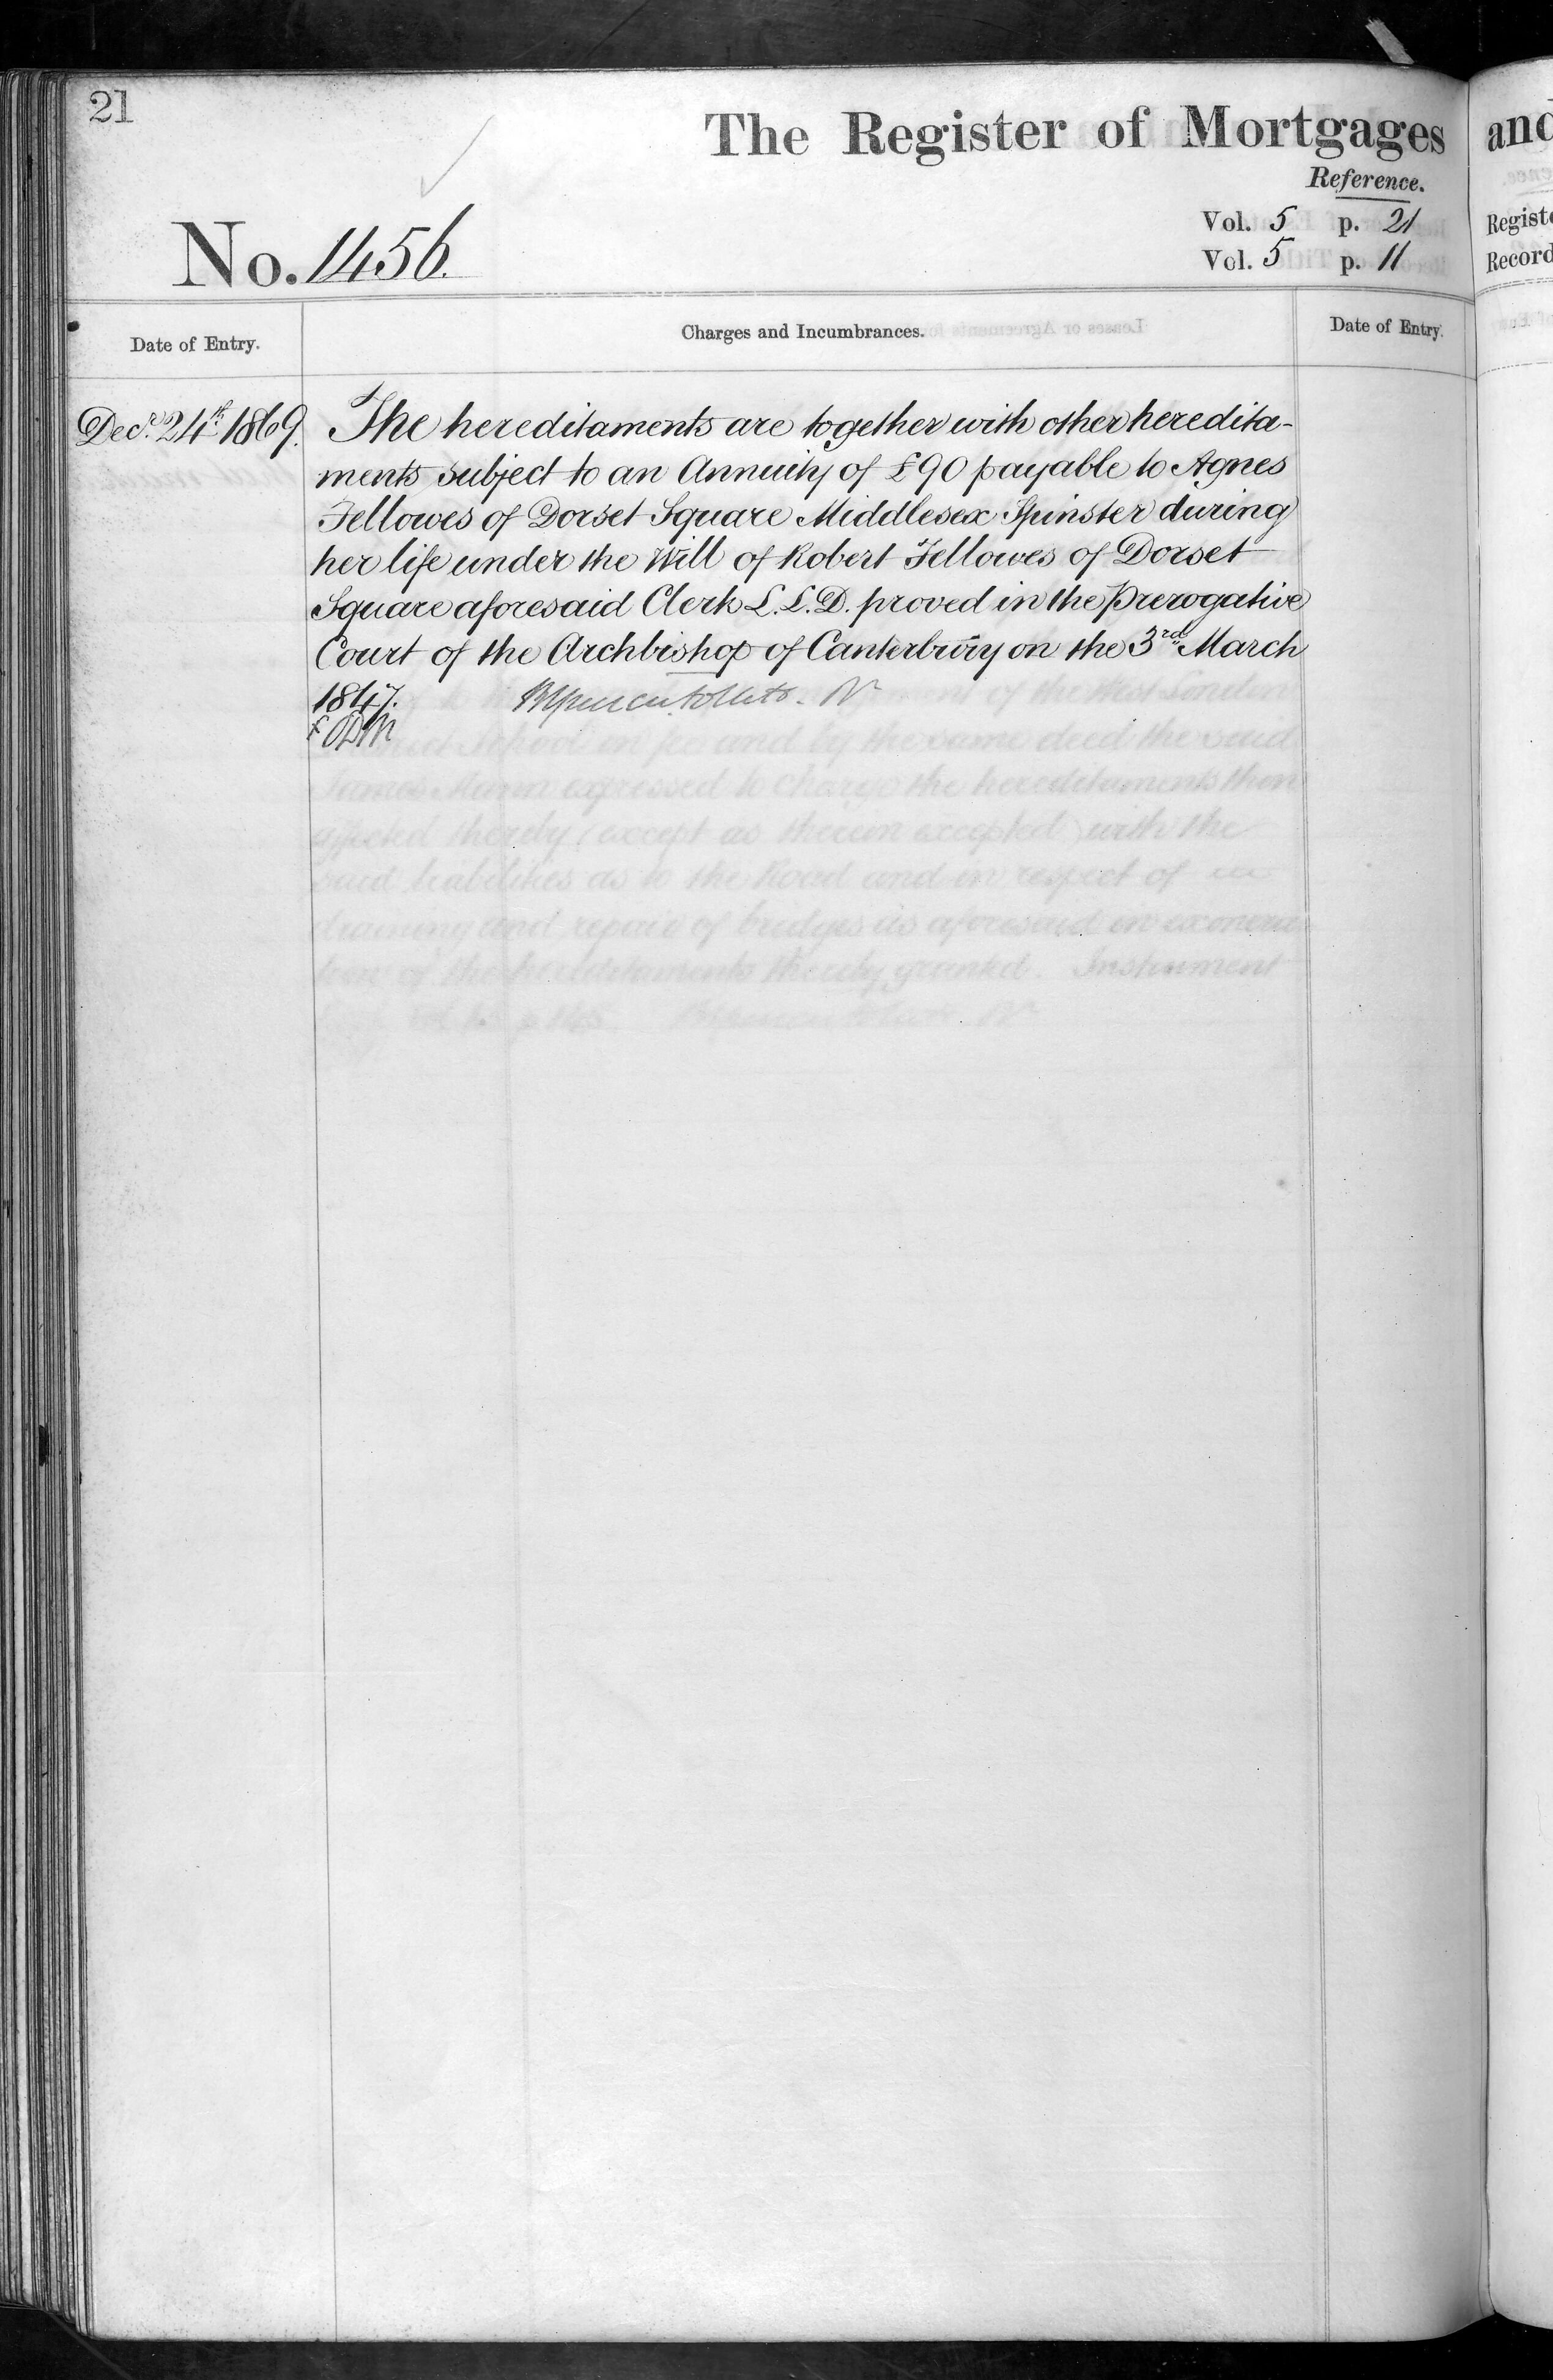 21
The Register of Mortgages
and
Reference.
Vol. 5 p. 21
Vol. 5 p. 11
No. 1456.
Date of Entry.
Charges and Incumbrances.
Date of Entry.
Decr. 24th 1869.
The hereditaments are together with other heredita-
ments subject to an Annuity of £90 payable to Agnes
Fellowes of Dorset Square Middlesex Spinster during
her life under the Will of Robert Fellowes of Dorset
Square aforesaid Clerk L.L.D. proved in the Prerogative
Court of the Archbishop of Canterbury on the 3rd March
1847.